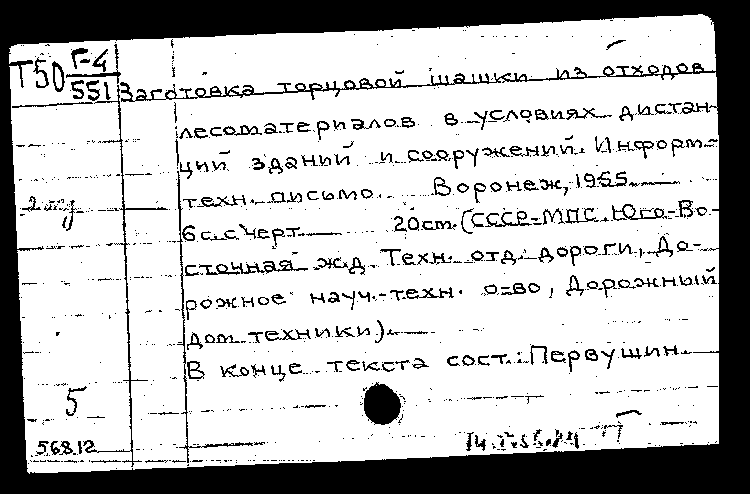 Т50 Г-4
551
Заготовка торцовой шашки из отходов
лесоматериалов в условиях дистан-
ций зданий и сооружений. Информ.-
техн. письмо. Воронеж, 1955.
6 с. с черт. 20 см. (СССР-МПС. Юго-Во-
сточная ж.д. Техн. отд. дороги, До-
рожное науч.-техн. о-во, Дорожный
дом техники).
В конце текста сост.: Первушин.
5
56812